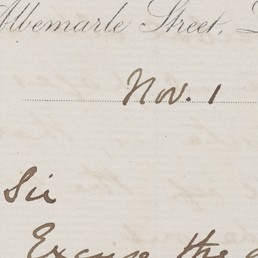 Albemarle Street,
Nov. 1
Sir
Excuse the